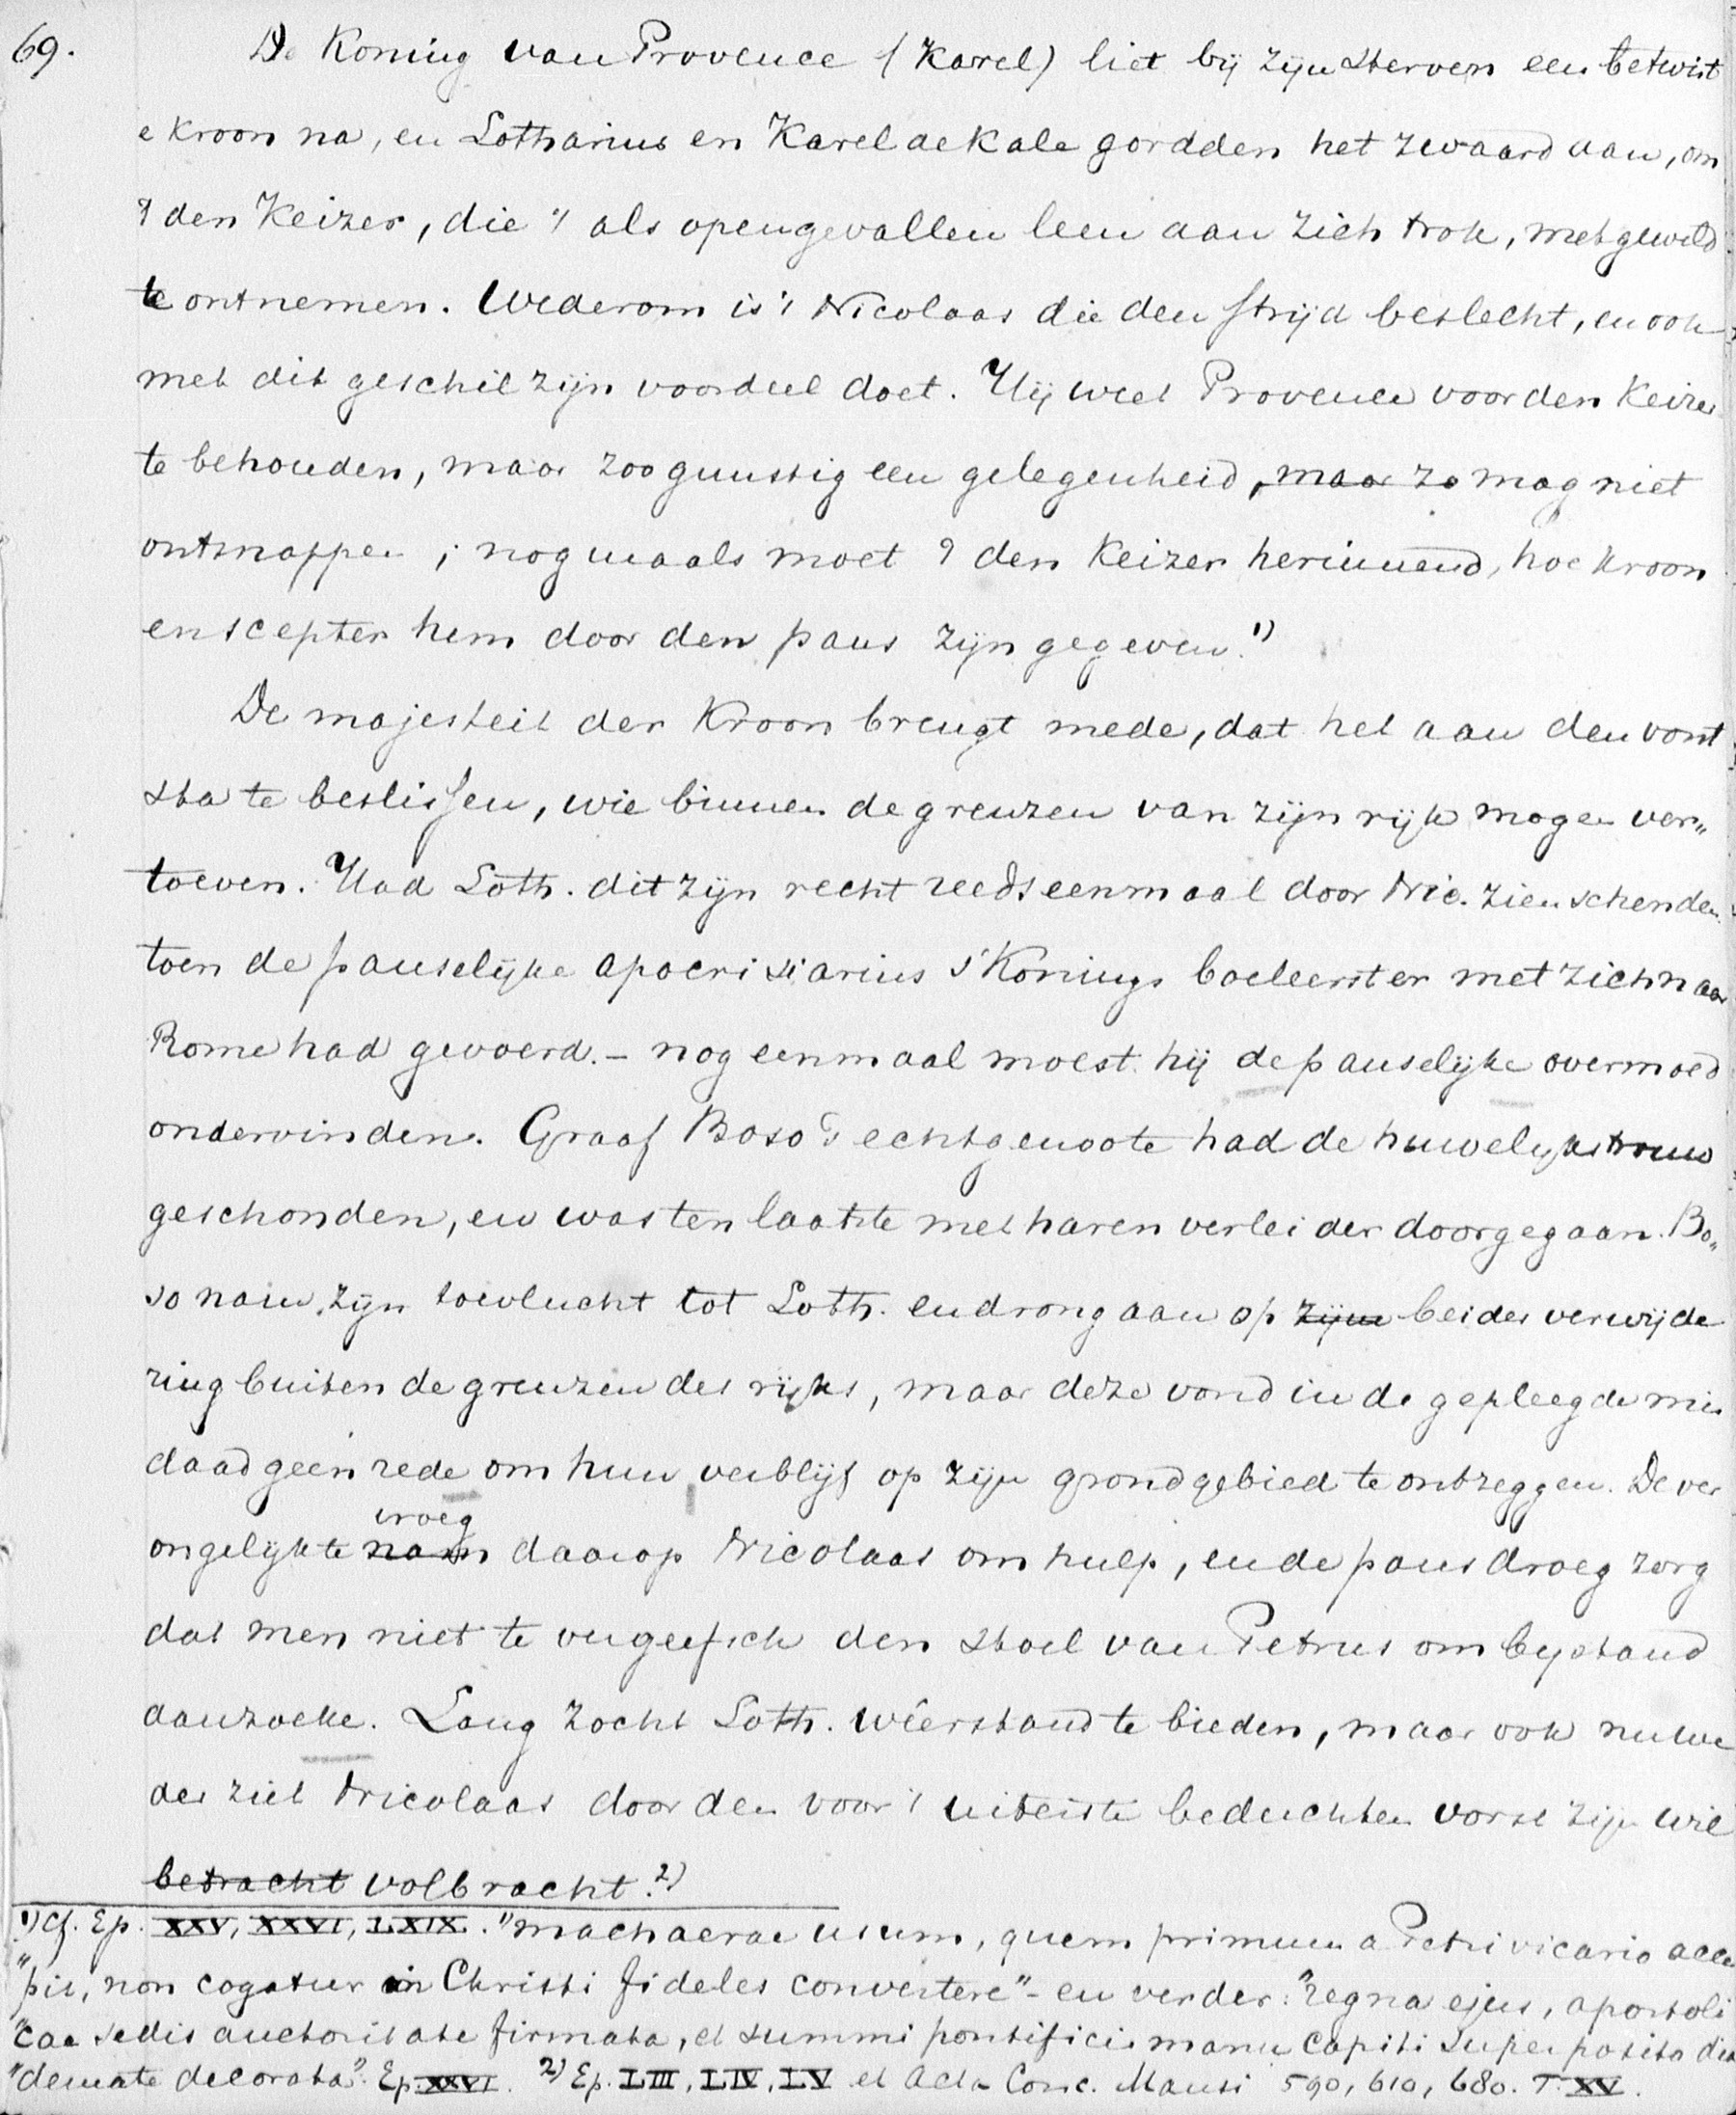 69.
De Koning van Provence (Karel) liet bij zijn sterven een betwist
e kroon na, en Lotharius en Karel de Kale gordden het zwaard aan, om
't den Keizer, die 't als opengevallen leen aan zich trok, met geweld
te ontnemen. Wederom is 't Nicolaas die den strijd beslecht, en ook
met dit geschil zijn voordeel doet. Hij weet Provence voor den Keizer
te behouden, maar zoo gunstig een gelegenheid, maar zo mag niet
ontsnappen; nogmaals moet 't den Keizer herinnerd, hoe kroon
en scepter hem door den paus zijn gegeven. 1)
De majesteit der Kroon brengt mede, dat het aan den vorst
sta te beslissen, wie binnen de grenzen van zijn rijk mogen ver„
toeven. Had Loth. dit zijn recht reeds eenmaal door Nic. zien schenden
toen de pauselijke apocrisiarius 's Konings boeleerster met zich naar
Rome had gevoerd. – nog eenmaal moest hij de pauselijke overmoed
ondervinden. Graaf Boso's echtgenoote had de huwelijkstrouw
geschonden, en was ten laatste met haren verleider doorgegaan. Bo„
so nam zijn toevlucht tot Loth. en drong aan op zijne beider verwijde
ring buiten de grenzen des rijks, maar deze vond in de gepleegde mis
daad geen rede om hun verblijf op zijn grondgebied te ontzeggen. De ver
vroeg
ongelijkte nam daarop Nicolaas om hulp, en de paus droeg zorg
dat men niet te vergeefsch den stoel van Petrus om bijstand
aanzoeke. Lang zocht Loth. wêerstand te bieden, maar ook nu we
der ziet Nicolaas door den voor 't uiterste beduchten vorst zijn wil
betracht volbracht. 2)
1) Cf. Ep. XXV, XXVI, LXIX. "machaerae usum, quem primum a Petri vicario acce
"pit, non cogatur in Christi fideles convertere" – en verder: "regna ejus, apostoli
"cae sedis auctoritate firmata, et summi pontificis manu capiti superposito dia
"demate decorata". Ep. XXVI. 2) Ep. LIII, LIV, LV et Acta Conc. Mansi 590, 610, 680. T. XV.